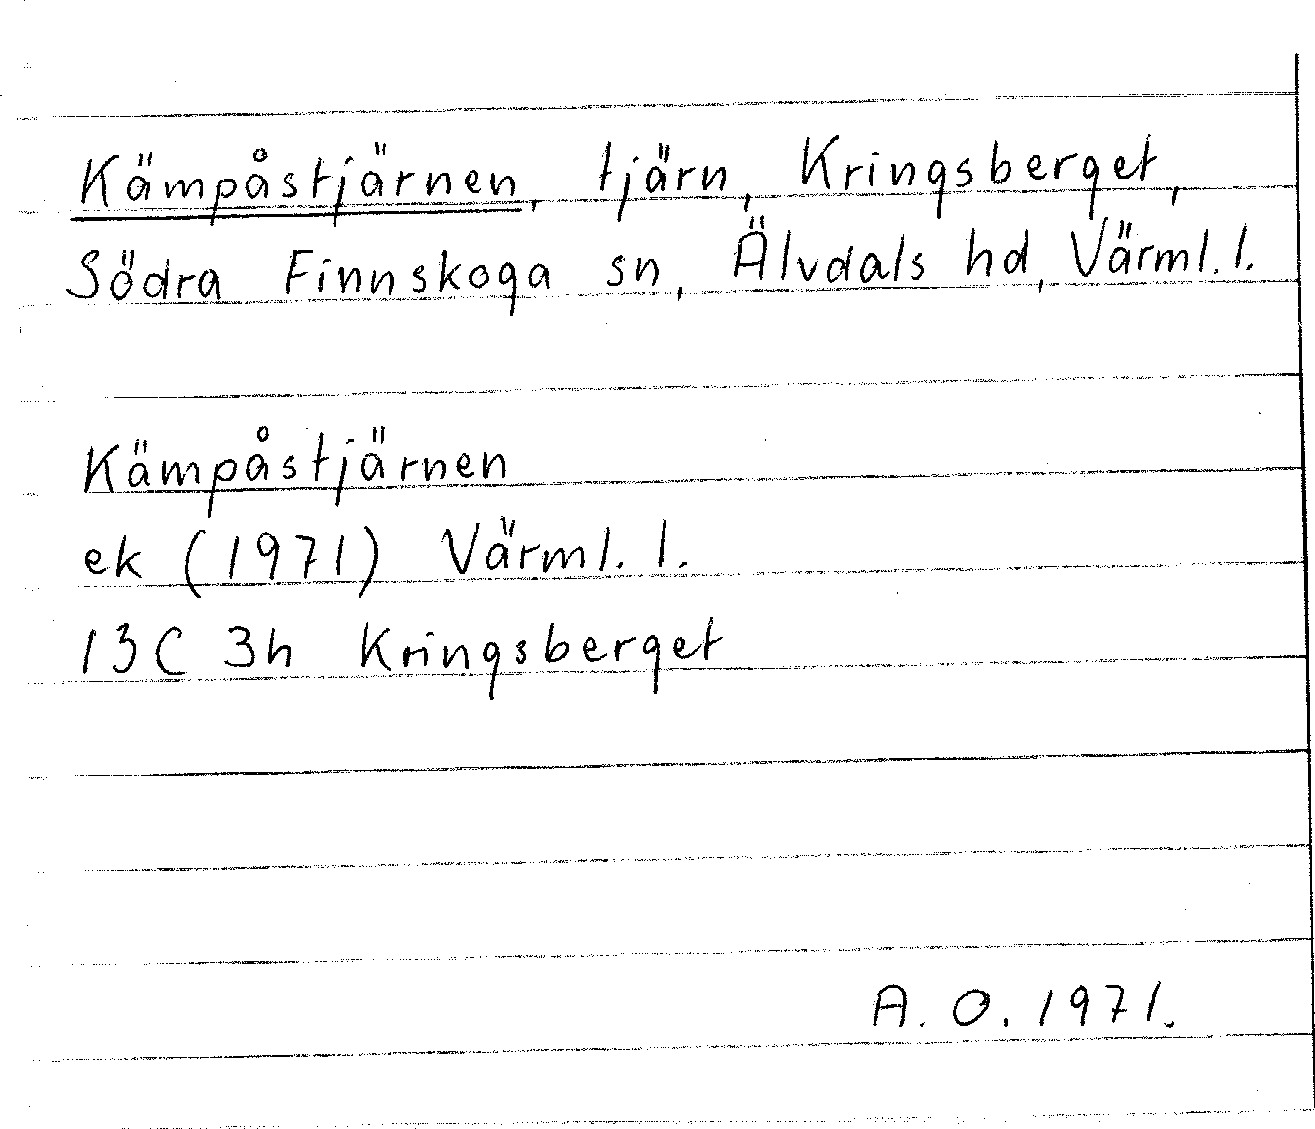 Kämpåstjärnen, tjärn, Kringsberget,
Södra Finnskoga sn, Älvdals hd, Värml. l.
Kämpåstjärnen
ek (1971) Värml. l.
13C 3h Kringsberget
A. O. 1971.